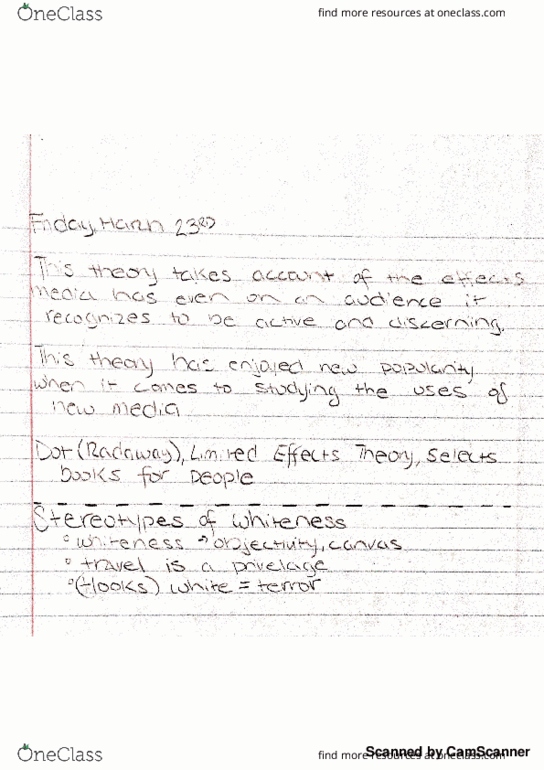 OneClass
find more resources at oneclass.com
Friday, March 23RD
This theory takes account of the effects
media has even on an audience it
recognizes to be active and discerning.
This theory has enjoyed new popularity
when it comes to studying the uses of
new media
Dot (Radaway), Limited Effects Theory, Selects
books for people
Stereotypes of whiteness
whiteness → objectivity, canvas
travel is a privelage
white = terror
OneClass
find more resources at oneclass.com
Scanned by CamScanner